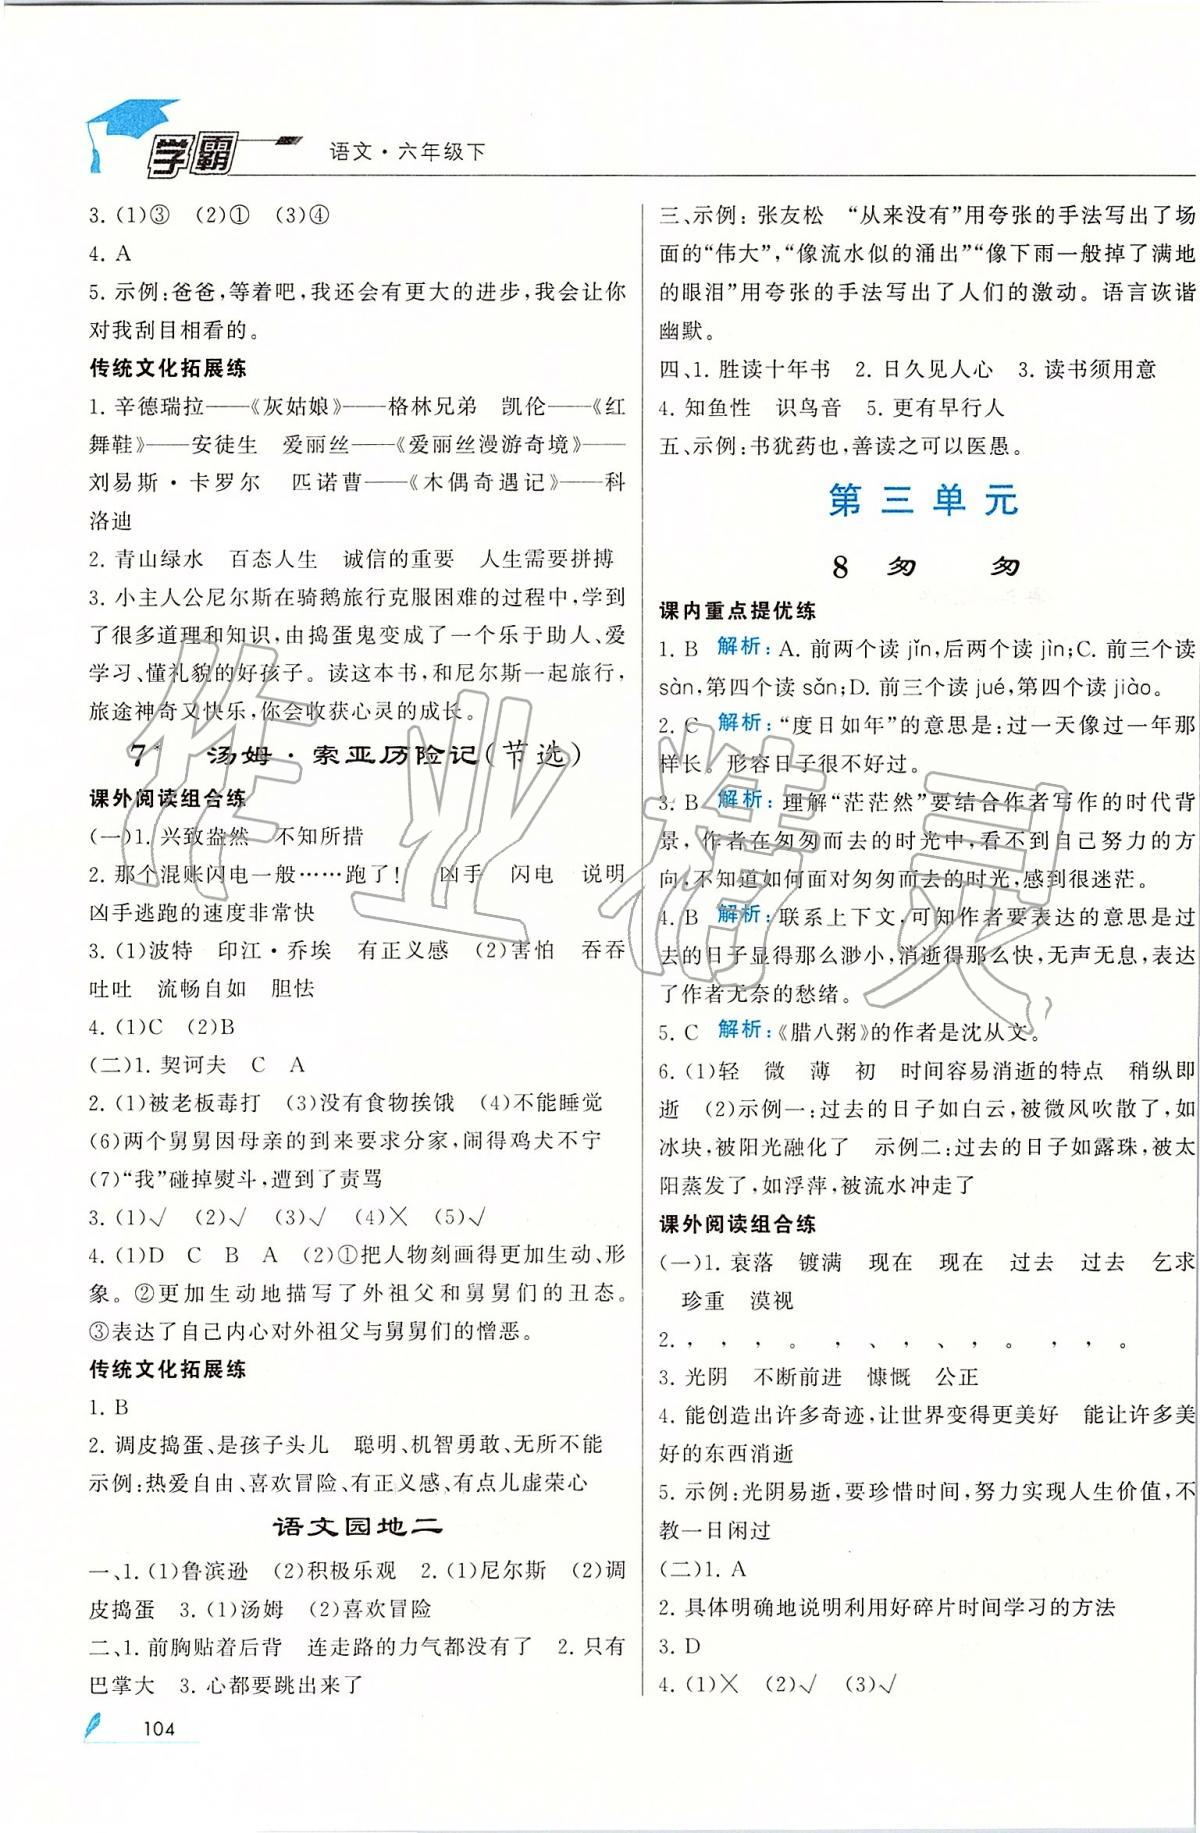 学霸
语文·六年级下
3. (1)③ (2)① (3)④
4. A
5. 示例:爸爸,等着吧,我还会有更大的进步,我会让你
对我刮目相看的。
传统文化拓展练
1. 辛德瑞拉——《灰姑娘》——格林兄弟 凯伦——《红
舞鞋》——安徒生 爱丽丝——《爱丽丝漫游奇境》——
刘易斯·卡罗尔 匹诺曹——《木偶奇遇记》——科
洛迪
2. 青山绿水 百态人生 诚信的重要 人生需要拼搏
3. 小主人公尼尔斯在骑鹅旅行克服困难的过程中,学到
了很多道理和知识,由捣蛋鬼变成了一个乐于助人、爱
学习、懂礼貌的好孩子。读这本书,和尼尔斯一起旅行,
旅途神奇又快乐,你会收获心灵的成长。
7* 汤姆·索亚历险记(节选)
课外阅读组合练
(一)1. 兴致盎然 不知所措
2. 那个混账闪电一般……跑了! 凶手 闪电 说明
凶手逃跑的速度非常快
3. (1)波特 印江·乔埃 有正义感 (2)害怕 吞吞
吐吐 流畅自如 胆怯
4. (1)C (2)B
(二)1. 契诃夫 C A
2. (1)被老板毒打 (3)没有食物挨饿 (4)不能睡觉
(6)两个舅舅因母亲的到来要求分家,闹得鸡犬不宁
(7)“我”碰掉熨斗,遭到了责骂
3. (1)√ (2)√ (3)√ (4)× (5)√
4. (1)D C B A (2)①把人物刻画得更加生动、形
象。②更加生动地描写了外祖父和舅舅们的丑态。
③表达了自己内心对外祖父与舅舅们的憎恶。
传统文化拓展练
1. B
2. 调皮捣蛋、是孩子头儿 聪明、机智勇敢、无所不能
示例:热爱自由、喜欢冒险、有正义感、有点儿虚荣心
语文园地二
一、1. (1)鲁滨逊 (2)积极乐观 2. (1)尼尔斯 (2)调
皮捣蛋 3. (1)汤姆 (2)喜欢冒险
二、1. 前胸贴着后背 连走路的力气都没有了 2. 只有
巴掌大 3. 心都要跳出来了
104
三、示例:张友松 “从来没有”用夸张的手法写出了场
面的“伟大”,“像流水似的涌出”“像下雨一般掉了满地
的眼泪”用夸张的手法写出了人们的激动。语言诙谐
幽默。
四、1. 胜读十年书 2. 日久见人心 3. 读书须用意
4. 知鱼性 识鸟音 5. 更有早行人
五、示例:书犹药也,善读之可以医愚。
第三单元
8 匆匆
课内重点提优练
1. B 解析:A. 前两个读 jǐn,后两个读 jìn;C. 前三个读
sàn,第四个读 sǎn;D. 前三个读 jué,第四个读 jiào。
2. C 解析:“度日如年”的意思是:过一天像过一年那
样长。形容日子很不好过。
3. B 解析:理解“茫茫然”要结合作者写作的时代背
景,作者在匆匆而去的时光中,看不到自己努力的方
向,不知道如何面对匆匆而去的时光,感到很迷茫。
4. B 解析:联系上下文,可知作者要表达的意思是过
去的日子显得那么渺小,消逝得那么快,无声无息,表达
了作者无奈的愁绪。
5. C 解析:《腊八粥》的作者是沈从文。
6. (1)轻 微 薄 初 时间容易消逝的特点 稍纵即
逝 (2)示例一:过去的日子如白云,被微风吹散了,如
冰块,被阳光融化了 示例二:过去的日子如露珠,被太
阳蒸发了,如浮萍,被流水冲走了
课外阅读组合练
(一)1. 衰落 镀满 现在 现在 过去 过去 乞求
珍重 漠视
2. , , , 。 , 、 , 、 , 。 , , 。
3. 光阴 不断前进 慷慨 公正
4. 能创造出许多奇迹,让世界变得更美好 能让许多美
好的东西消逝
5. 示例:光阴易逝,要珍惜时间,努力实现人生价值,不
教一日闲过
(二)1. A
2. 具体明确地说明利用好碎片时间学习的方法
3. D
4. (1)× (2)√ (3)√
作业精灵